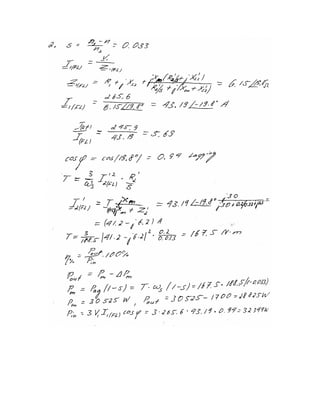 2. s = (n_s - n)/n_s = 0.033
I_1(FL) = V_1/Z_1(FL)
Z_1(FL) = R_1 + j X_1s + jX_m (R_2'/s + j X_2s')/(R_2'/s + j(X_m + X_2s')) = 6.15 ∠19.8°
I_1(FL) = 265.6/6.15∠19.8° = 43.19 ∠-19.8° A
I_(st)/I_(FL) = 245.9/43.19 = 5.69
cos φ = cos(19.8°) = 0.94 lagging
T = 3/ω_s I_2(FL)'² · R_2'/s
I_2(FL)' = I · jX_m/(jX_m + Z_2') = 43.19 ∠-19.8° · j30 =
= (41.2 - j 6.2) A
T = 3/188.5 |41.2 - j6.2|² · 0.2/0.033 = 167.5 N·m
η% = P_out/P_in · 100%
P_out = P_m - ΔP_m
P_m = P_ag (1-s) = T · ω_s (1-s) = 167.5 · 188.5 (1-0.033)
P_m = 30525 W , P_out = 30525 - 1700 = 28825 W
P_in = 3 V_1 I_1(FL) cos φ = 3 · 265.6 · 43.19 · 0.94 = 32349 W